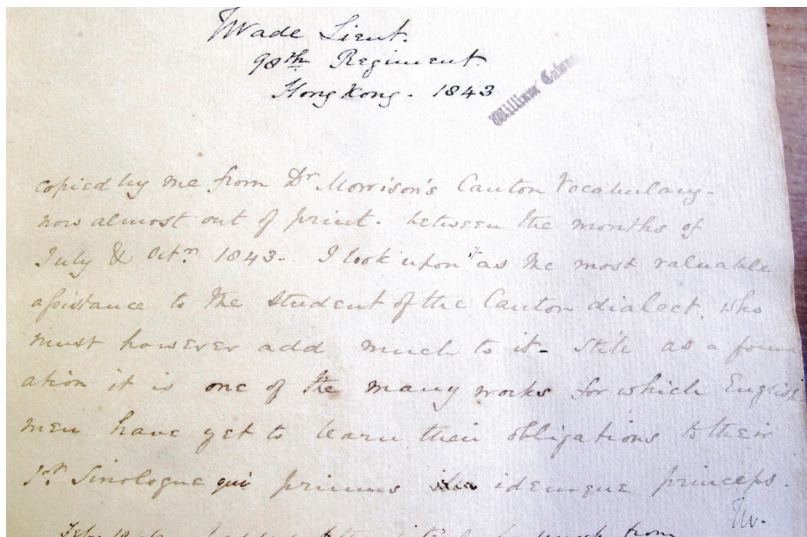 TWade Lieut.
98th Regiment
Hong Kong. 1843
William
copied by me from Dr Morrison's Canton Vocabulary-
now almost out of print. between the months of
July & Octr 1843- I look upon it as the most valuable
assistance to the student of the Canton dialect, who
must however add much to it- Still as a foun
ation it is one of the many works for which English
men have yet to learn their obligations to their
1st Sinologue qui primus idemque princeps.
TW.